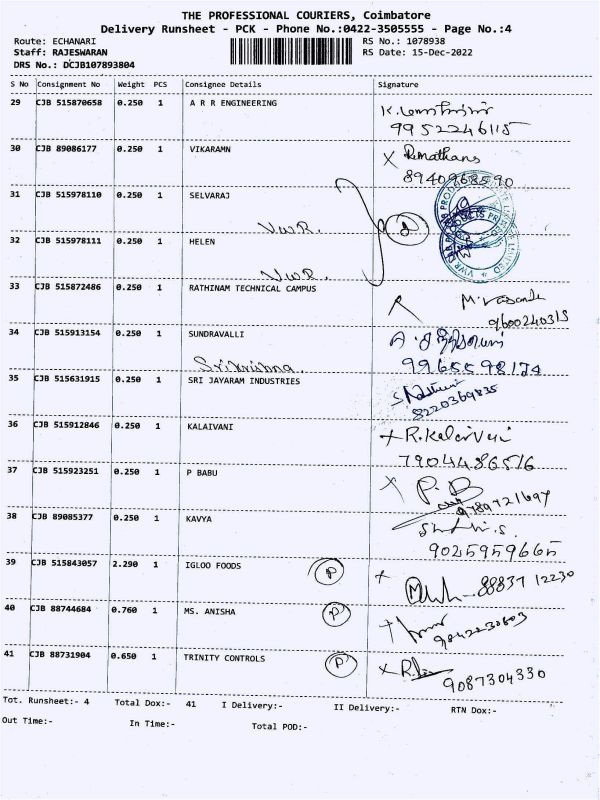 THE PROFESSIONAL COURIERS, Coimbatore
Delivery Runsheet - PCK - Phone No.:0422-3505555 - Page No.:4
Route: ECHANARI
RS No.: 1078938
Staff: RAJESWARAN
RS Date: 15-Dec-2022
DRS No.: DCJB107893804
S No Consignment No Weight PCS Consignee Details Signature
29 CJB 515870658 0.250 1 A R R ENGINEERING
9952246115
30 CJB 89086177 0.250 1 VIKARAMN
8940968590
31 CJB 515978110 0.250 1 SELVARAJ
VWR.
32 CJB 515978111 0.250 1 HELEN
VWR.
33 CJB 515872486 0.250 1 RATHINAM TECHNICAL CAMPUS
9600240315
34 CJB 515913154 0.250 1 SUNDRAVALLI
Srikrishna
9965598174
35 CJB 515631915 0.250 1 SRI JAYARAM INDUSTRIES
8220369835
36 CJB 515912846 0.250 1 KALAIVANI
7904486516
37 CJB 515923251 0.250 1 P BABU
P.B
9789721697
38 CJB 89085377 0.250 1 KAVYA
9025959665
39 CJB 515843057 2.290 1 IGLOO FOODS P
88837 12230
40 CJB 88744684 0.760 1 MS. ANISHA P
9842230803
41 CJB 88731904 0.650 1 TRINITY CONTROLS P
9087304330
Tot. Runsheet:- 4 Total Dox:- 41 I Delivery:- II Delivery:- RTN Dox:-
Out Time:- In Time:- Total POD:-